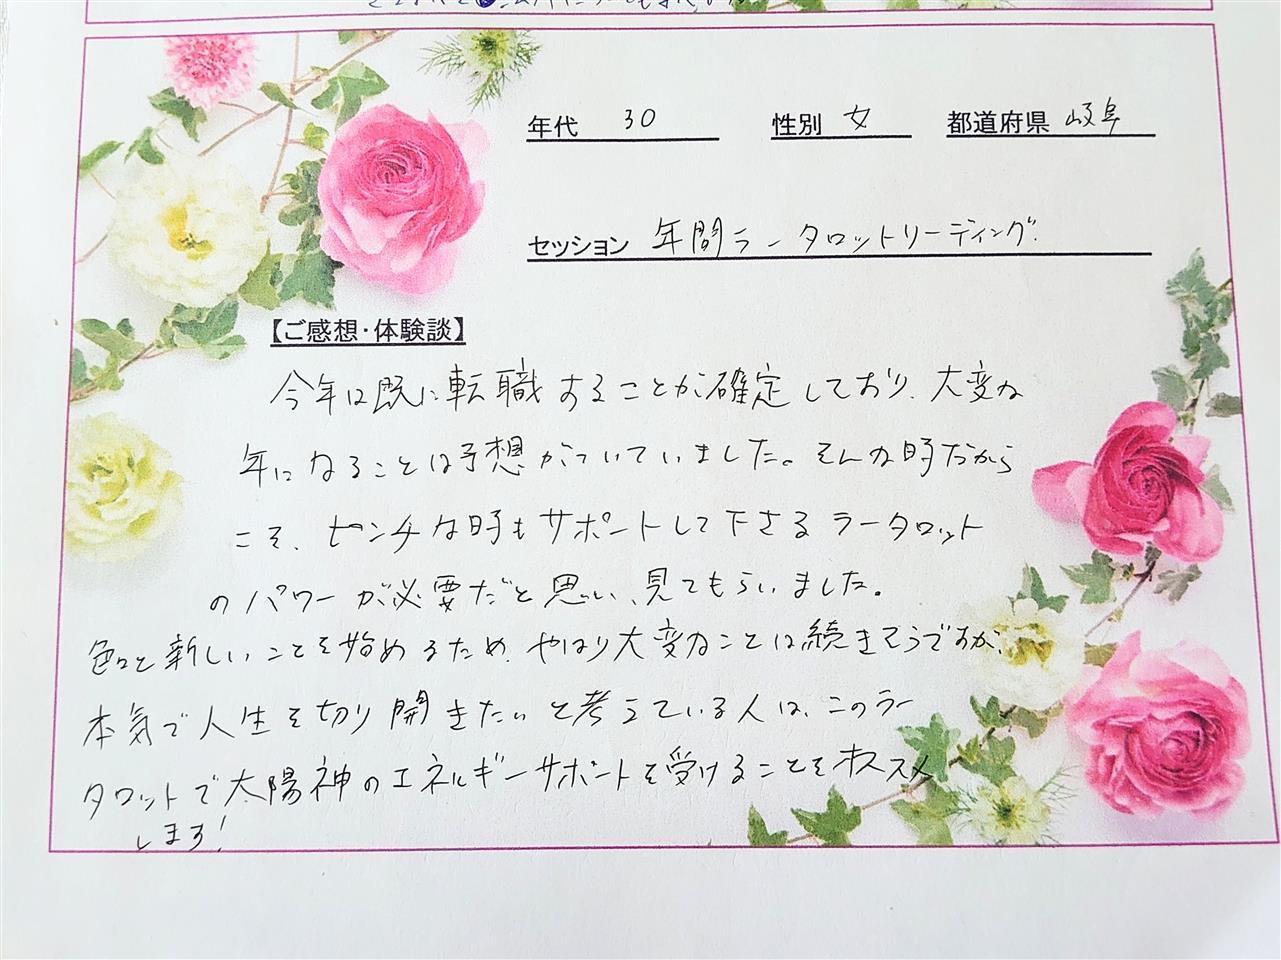 年代 30 性別 女 都道府県 岐阜
セッション 年間ラータロットリーディング
【ご感想・体験談】
今年は既に転職することが確定しており、大変な
年になることは予想がついていました。そんな時だから
こそ、ピンチな時もサポートして下さるラータロット
のパワーが必要だと思い、見てもらいました。
色々と新しいことを始めるため、やはり大変なことは続きそうですが、
本気で人生を切り開きたいと考えている人は、このラー
タロットで太陽神のエネルギーサポートを受けることをオススメ
します!